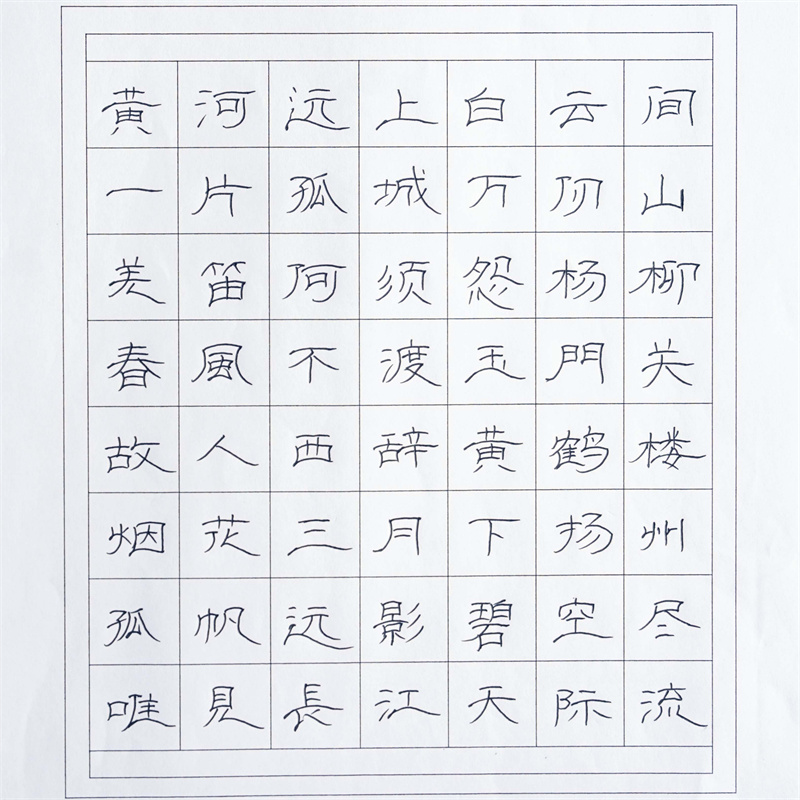 黄河远上白云间
一片孤城万仞山
羌笛何须怨杨柳
春風不渡玉門关
故人西辞黄鹤楼
烟花三月下扬州
孤帆远影碧空尽
唯見長江天际流